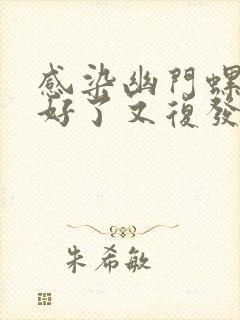 感染幽門螺
好了又復發
朱希敏